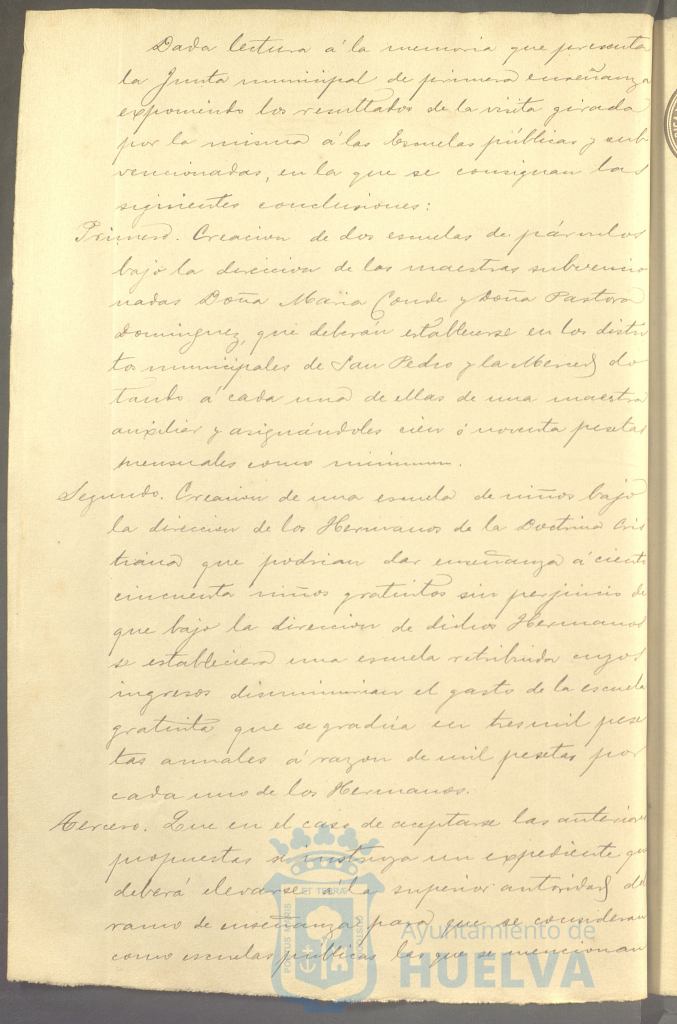 Dada lectura á la memoria que presenta
la Junta municipal de primera enseñanza
exponiendo los resultados de la visita girada
por la misma á las Escuelas públicas y sub
vencionadas, en la que se consignan las
siguientes conclusiones:
Primero. Creacion de dos escuelas de párvulos
bajo la direccion de las maestras subvencio
nadas Doña María Conde y Doña Pastora
Dominguez, que deberán establecerse en los distri
tos municipales de San Pedro y la Merced do
tando á cada una de ellas de una maestra
auxiliar y asignándoles cien ó noventa pesetas
mensuales como minimum.
Segundo. Creacion de una escuela de niños bajo
la direccion de los Hermanos de la Doctrina Cris
tiana que podrian dar enseñanza á ciento
cincuenta niños gratuitos sin perjuicio de
que bajo la direccion de dichos Hermanos
se estableciera una escuela retribuida cuyos
ingresos disminuirian el gasto de la escuela
gratuita que se gradúa en tres mil pese
tas anuales á razon de mil pesetas por
cada uno de los Hermanos.
Tercero. Que en el caso de aceptarse las anteriores
propuestas se instruya un expediente que
deberá elevarse á la superior autoridad del
ramo de enseñanza para que se consideran
como escuelas públicas las que se mencionan
Ayuntamiento de
HUELVA